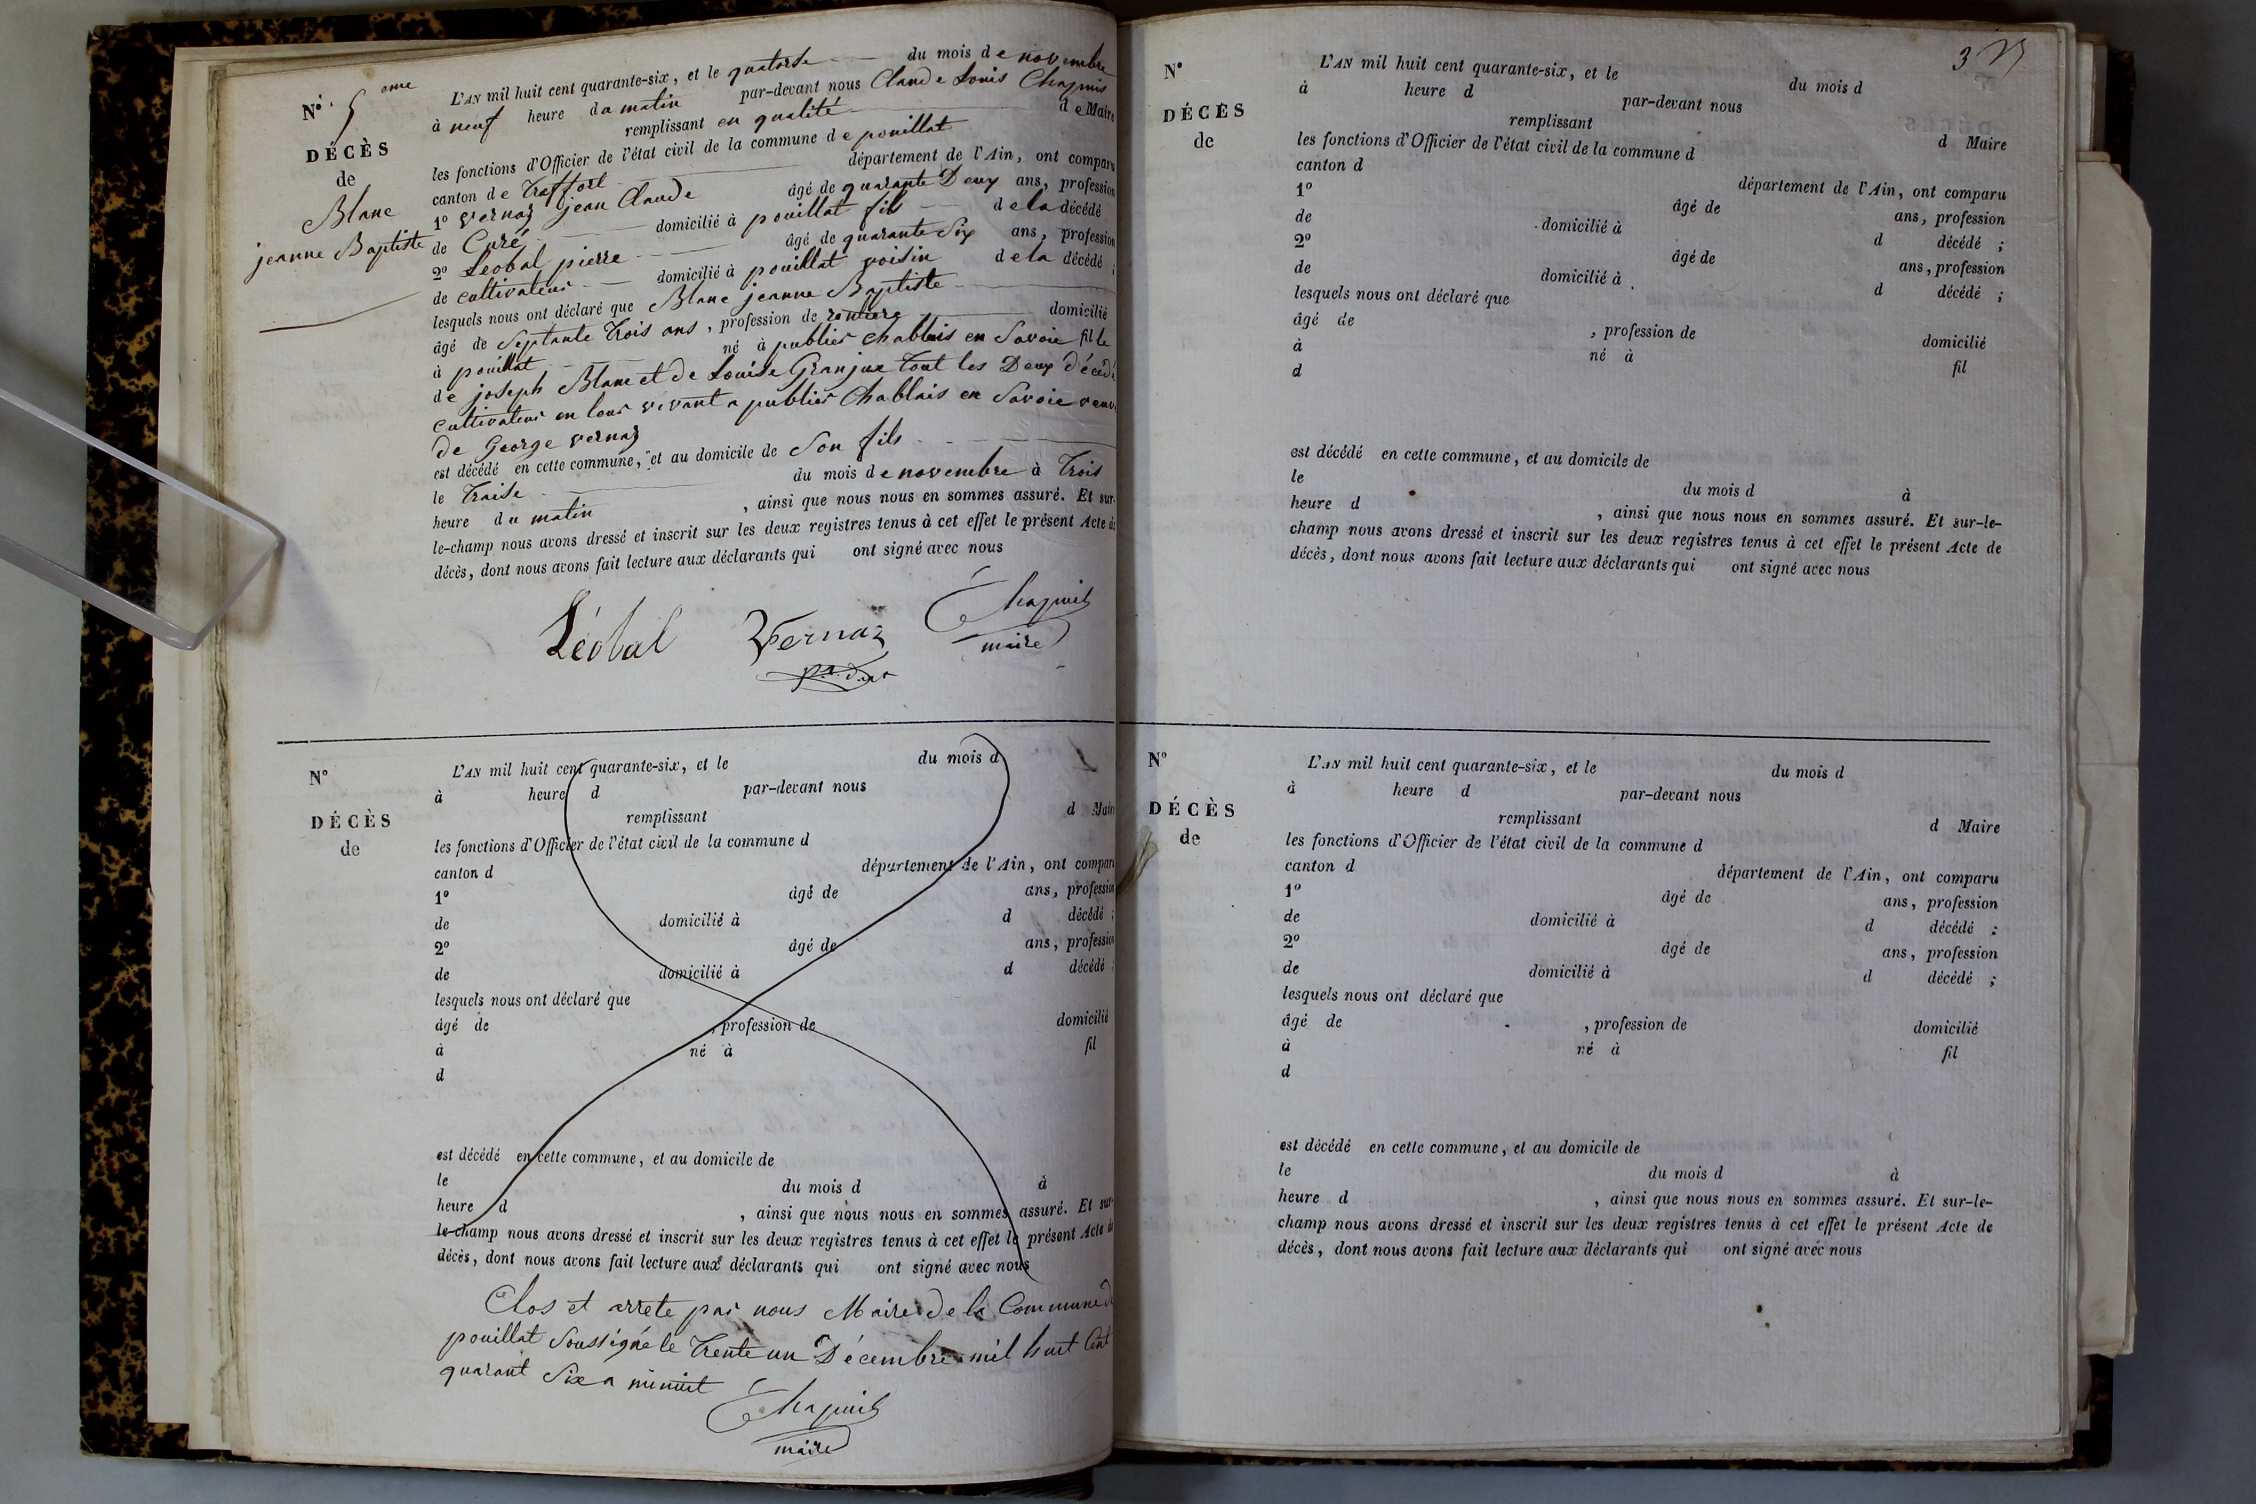 N° 5 eme
DÉCÈS
de
Blanc
jeanne Baptiste
L'AN mil huit cent quarante-six, et le quatorse du mois de novembre
à neuf heure du matin par-devant nous Claude Louis Chapuis
remplissant en qualité de Maire
les fonctions d'Officier de l'état civil de la commune de pouillat
canton de Treffort département de l'Ain, ont comparu
1° Vernaz jean Claude âgé de quarante Deux ans, profession
de Curé domicilié à pouillat fils de la décédé
2° Léobal pierre âgé de quarante Six ans, profession
de cultivateur domicilié à pouillat voisin de la décédé ;
lesquels nous ont déclaré que Blanc jeanne Baptiste
âgé de Septante Trois ans, profession de rentiere domicilié
à pouillat né à publier chablais en Savoie fille
de joseph Blanc et de Louise Granjux tout les Deux décédé
cultivateur en leur vivant a publier Chablais en Savoie veuve
de George vernaz
est décédé en cette commune, et au domicile de Son fils
le Traise du mois de novembre à Trois
heure du matin , ainsi que nous nous en sommes assuré. Et sur-
le-champ nous avons dressé et inscrit sur les deux registres tenus à cet effet le présent Acte de
décès, dont nous avons fait lecture aux déclarants qui ont signé avec nous
Léobal Vernaz Chapuis
maire
N°
DÉCÈS
de
L'AN mil huit cent quarante-six, et le du mois d
à heure d par-devant nous
remplissant d Maire
les fonctions d'Officier de l'état civil de la commune d
canton d département de l'Ain, ont comparu
1° âgé de ans, profession
de domicilié à d décédé ;
2° âgé de ans, profession
de domicilié à d décédé ;
lesquels nous ont déclaré que
âgé de , profession de domicilié
à né à fil
d
est décédé en cette commune, et au domicile de
le du mois d à
heure d , ainsi que nous nous en sommes assuré. Et sur-
le-champ nous avons dressé et inscrit sur les deux registres tenus à cet effet le présent Acte de
décès, dont nous avons fait lecture aux déclarants qui ont signé avec nous
Clos et arrete par nous Maire de la Commune de
pouillat Soussigné le Trente un Décembre mil huit Cent
quarant Six a minuit
Chapuis
maire
N°
DÉCÈS
de
L'AN mil huit cent quarante-six, et le du mois d
à heure d par-devant nous
remplissant d Maire
les fonctions d'Officier de l'état civil de la commune d
canton d département de l'Ain, ont comparu
1° âgé de ans, profession
de domicilié à d décédé ;
2° âgé de ans, profession
de domicilié à d décédé ;
lesquels nous ont déclaré que
âgé de , profession de domicilié
à né à fil
d
est décédé en cette commune, et au domicile de
le du mois d à
heure d , ainsi que nous nous en sommes assuré. Et sur-le-
champ nous avons dressé et inscrit sur les deux registres tenus à cet effet le présent Acte de
décès, dont nous avons fait lecture aux déclarants qui ont signé avec nous
N°
DÉCÈS
de
L'AN mil huit cent quarante-six, et le du mois d
à heure d par-devant nous
remplissant d Maire
les fonctions d'Officier de l'état civil de la commune d
canton d département de l'Ain, ont comparu
1° âgé de ans, profession
de domicilié à d décédé ;
2° âgé de ans, profession
de domicilié à d décédé ;
lesquels nous ont déclaré que
âgé de , profession de domicilié
à né à fil
d
est décédé en cette commune, et au domicile de
le du mois d à
heure d , ainsi que nous nous en sommes assuré. Et sur-le-
champ nous avons dressé et inscrit sur les deux registres tenus à cet effet le présent Acte de
décès, dont nous avons fait lecture aux déclarants qui ont signé avec nous